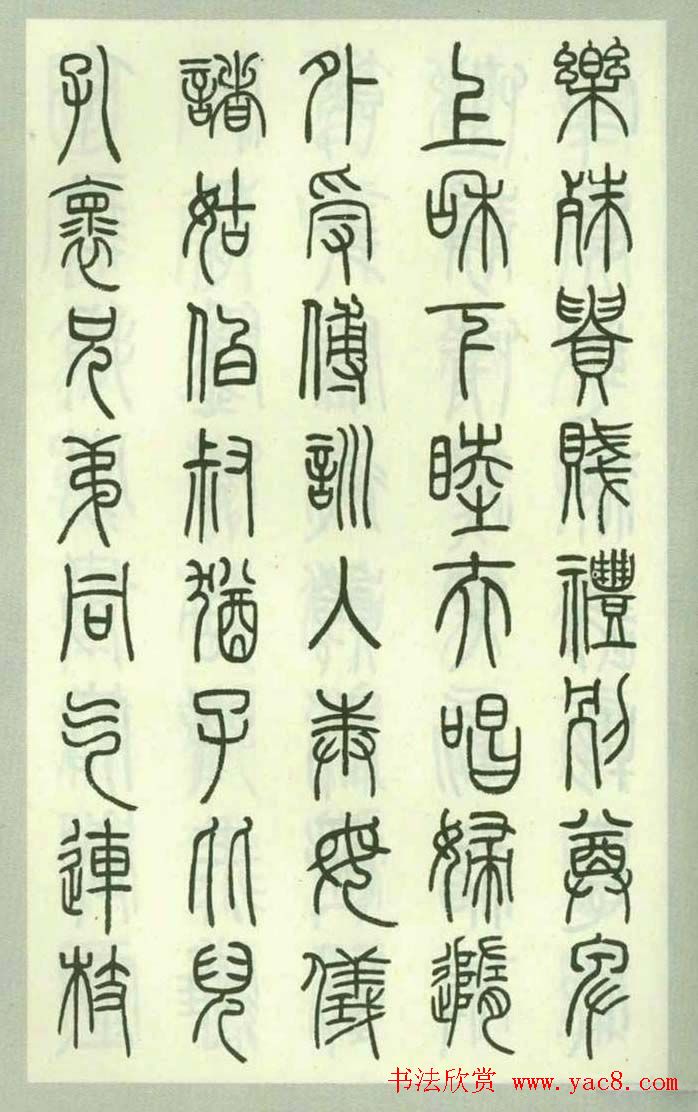 樂殊貴賤禮別尊卑
上和下睦夫唱婦隨
外受傅訓入奉母儀
諸姑伯叔猶子比兒
孔懷兄弟同气連枝
书法欣赏 www.yac8.com